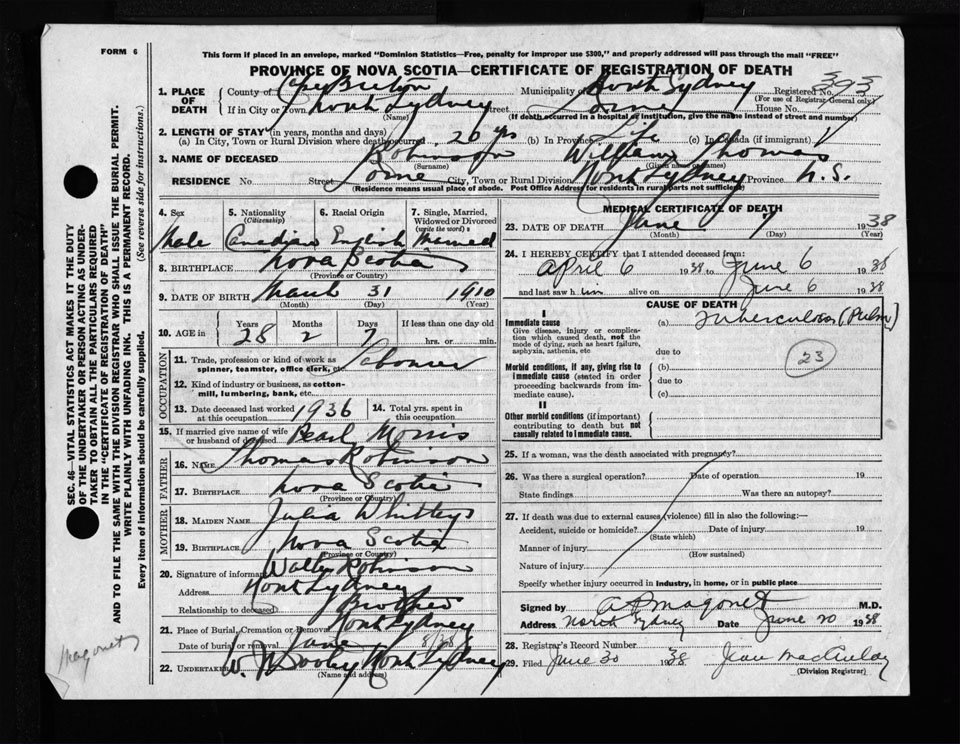 FORM 6
This form if placed in an envelope, marked "Dominion Statistics—Free, penalty for improper use $300," and properly addressed will pass through the mail "FREE"
PROVINCE OF NOVA SCOTIA—CERTIFICATE OF REGISTRATION OF DEATH
1. PLACE OF DEATH
County of Cape Breton Municipality of North Sydney Registered No. 393
(For use of Registrar-General only)
If in City or Town North Sydney Street Lorne House No.
(Name) (If death occurred in a hospital or institution, give the name instead of street and number)
2. LENGTH OF STAY (in years, months and days)
(a) In City, Town or Rural Division where death occurred 26 yrs (b) In Province Life (c) In Canada (if immigrant)
3. NAME OF DECEASED Robinson William Thomas
(Surname) (Given name or names)
RESIDENCE No. Street Lorne City, Town or Rural Division North Sydney Province N.S.
(Residence means usual place of abode. Post Office Address for residents in rural parts not sufficient)
SEC. 46—VITAL STATISTICS ACT MAKES IT THE DUTY
OF THE UNDERTAKER OR PERSON ACTING AS UNDER-
TAKER TO OBTAIN ALL THE PARTICULARS REQUIRED
IN THE "CERTIFICATE OF REGISTRATION OF DEATH"
AND TO FILE THE SAME WITH THE DIVISION REGISTRAR WHO SHALL ISSUE THE BURIAL PERMIT.
WRITE PLAINLY WITH UNFADING INK. THIS IS A PERMANENT RECORD.
Every item of information should be carefully supplied. (See reverse side for instructions.)
4. Sex 5. Nationality (Citizenship) 6. Racial Origin 7. Single, Married, Widowed or Divorced (write the word)
Male Canadian English Married
8. BIRTHPLACE Nova Scotia
(Province or Country)
9. DATE OF BIRTH March 31 1910
(Month) (Day) (Year)
10. AGE in Years Months Days If less than one day old
28 2 7 hrs. or min.
OCCUPATION
11. Trade, profession or kind of work as spinner, teamster, office clerk, etc. Labourer
12. Kind of industry or business, as cotton-mill, lumbering, bank, etc.
13. Date deceased last worked at this occupation 1936 14. Total yrs. spent in this occupation
15. If married give name of wife or husband of deceased Pearl Morris
FATHER
16. NAME Thomas Robinson
17. BIRTHPLACE Nova Scotia
(Province or Country)
MOTHER
18. MAIDEN NAME Julia
19. BIRTHPLACE Nova Scotia
(Province or Country)
20. Signature of informant Robinson
Address North Sydney
Relationship to deceased Brother
21. Place of Burial, Cremation or Removal North Sydney
Date of burial or removal June 8/38
22. Undertaker North Sydney
(Name and address)
Magonet
MEDICAL CERTIFICATE OF DEATH
23. DATE OF DEATH June 7 1938
(Month) (Day) (Year)
24. I HEREBY CERTIFY that I attended deceased from:
April 6 1938 to June 6 1938
and last saw him alive on June 6 1938
CAUSE OF DEATH
I
Immediate cause (a) Tuberculosis (Pulm)
Give disease, injury or complication which caused death, not the mode of dying, such as heart failure, asphyxia, asthenia, etc
due to 23
Morbid conditions, if any, giving rise to immediate cause (stated in order proceeding backwards from immediate cause).
(b)
due to
(c)
II
Other morbid conditions (if important) contributing to death but not causally related to immediate cause.
25. If a woman, was the death associated with pregnancy?
26. Was there a surgical operation? Date of operation 19
State findings Was there an autopsy?
27. If death was due to external causes (violence) fill in also the following:—
Accident, suicide or homicide? Date of injury 19
(State which)
Manner of injury
(How sustained)
Nature of injury
Specify whether injury occurred in industry, in home, or in public place
Signed by A P Magonet M.D.
Address North Sydney Date June 20 1938
28. Registrar's Record Number
29. Filed June 30 1938 Jean
(Division Registrar)